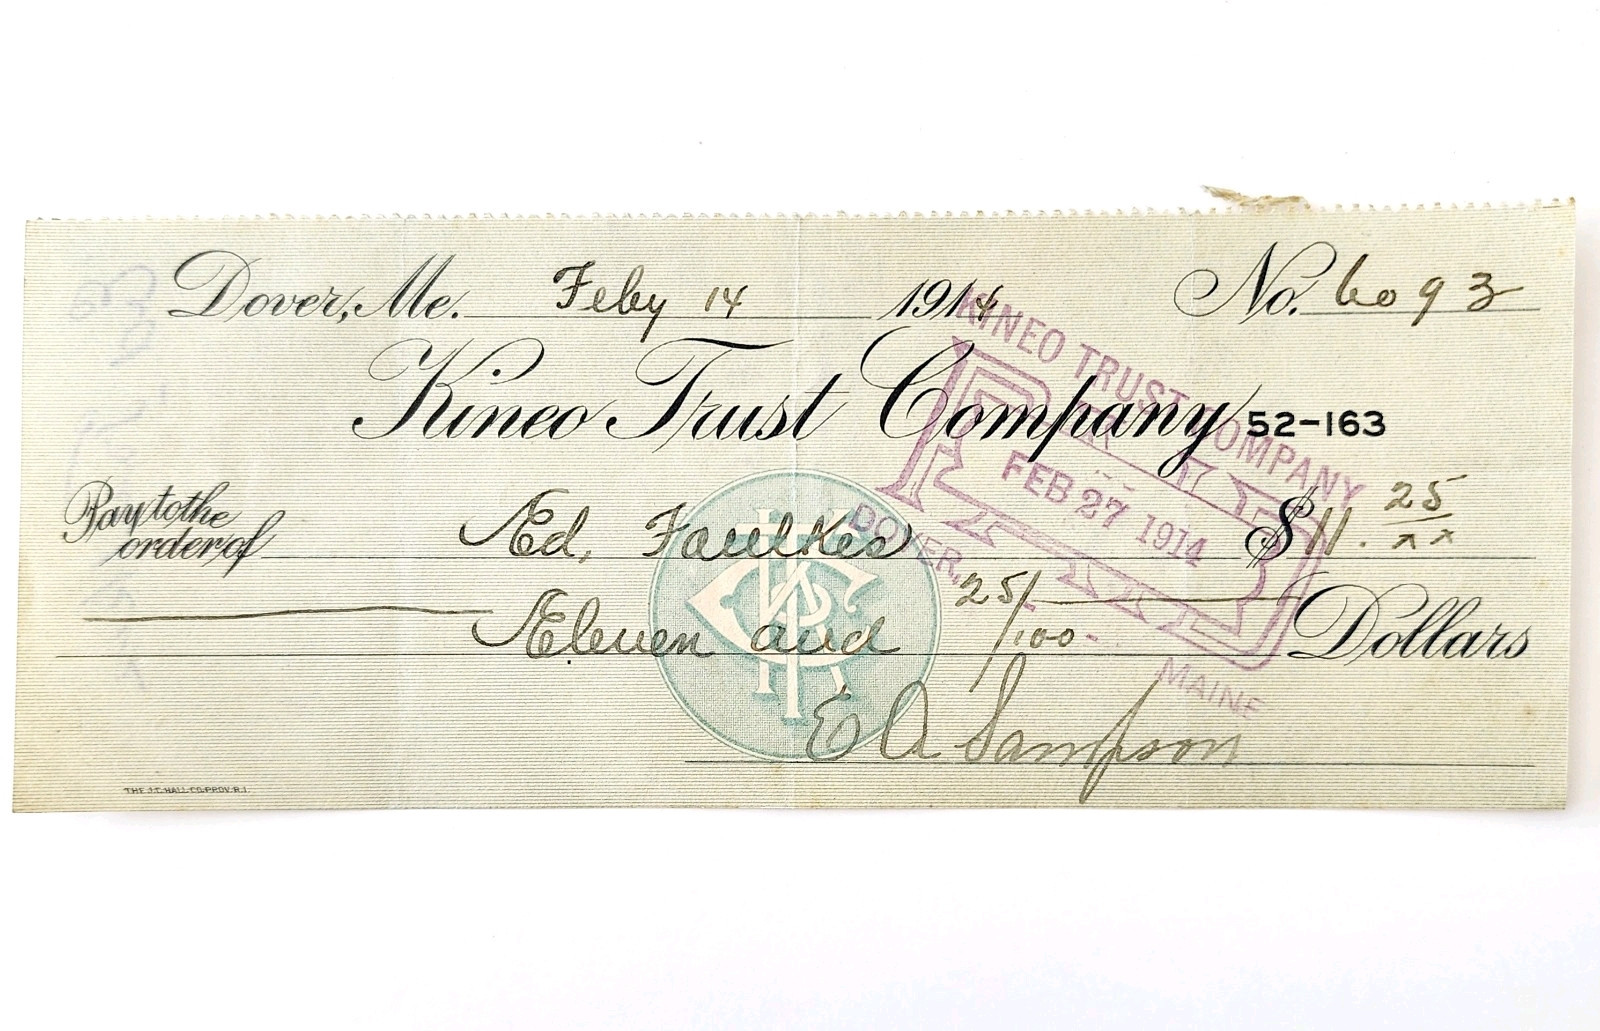 Dover, Me. Feby 14 1914 No. 6093
Kineo Trust Company 52-163
KINEO TRUST COMPANY
PAID
FEB 27 1914
DOVER, MAINE
Pay to the order of Ed. Faulkes $11. 25/xx
Eleven and 25/100 Dollars
E A Sampson
THE J.C. HALL CO. PROV. R.I.